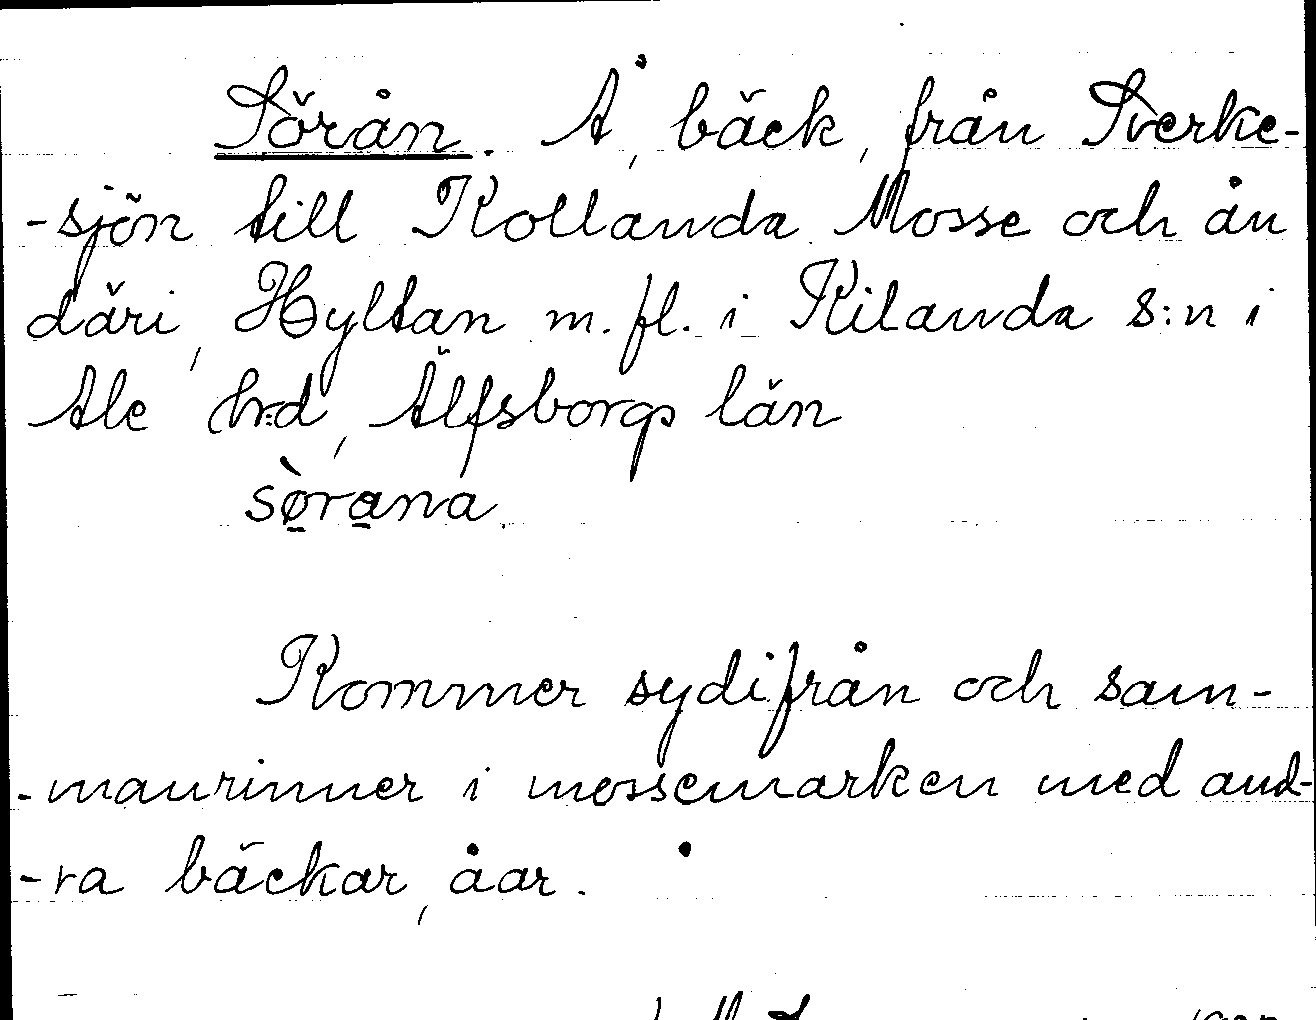 Sörån. Å, bäck, från Sverke-
-sjön till Kollanda Mosse och ån
däri, Hyltan m.fl. i Kilanda s:n i
Ale hrd, Älfsborgs län
sø̀rana
Kommer sydifrån och sam-
-manrinner i mossemarken med and-
-ra bäckar, åar.